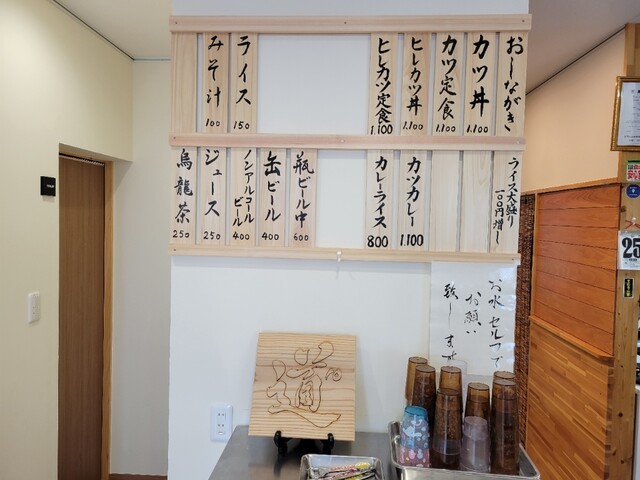 おしながき
カツ丼 1.100
カツ定食 1.100
ヒレカツ丼 1.100
ヒレカツ定食 1.100
ライス 150
みそ汁 100
ライス大盛り
一〇〇円増し
カツカレー 1.100
カレーライス 800
瓶ビール中 600
缶ビール 400
ノンアルコールビール 400
ジュース 250
烏龍茶 250
お水セルフで
お願い
致します
道
25